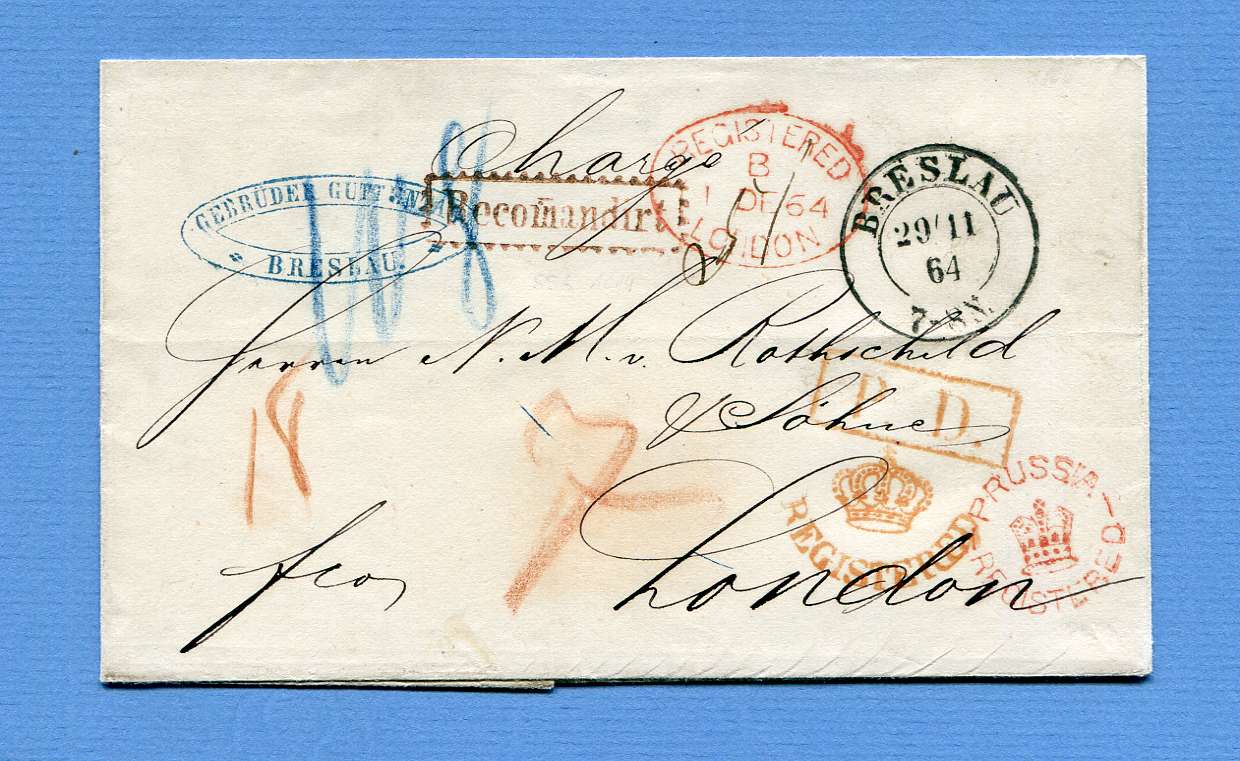 Charge
REGISTERED
B
1 DE 64
LONDON
BRESLAU
29/11
64
7-8N.
GEBRÜDER GUTTENTAG
* BRESLAU. *
Recomandirt
Herren N. M. v. Rothschild
& Söhne
P. D.
18
7
REGISTERED
PRUSSIA
REGISTERED
fco
London